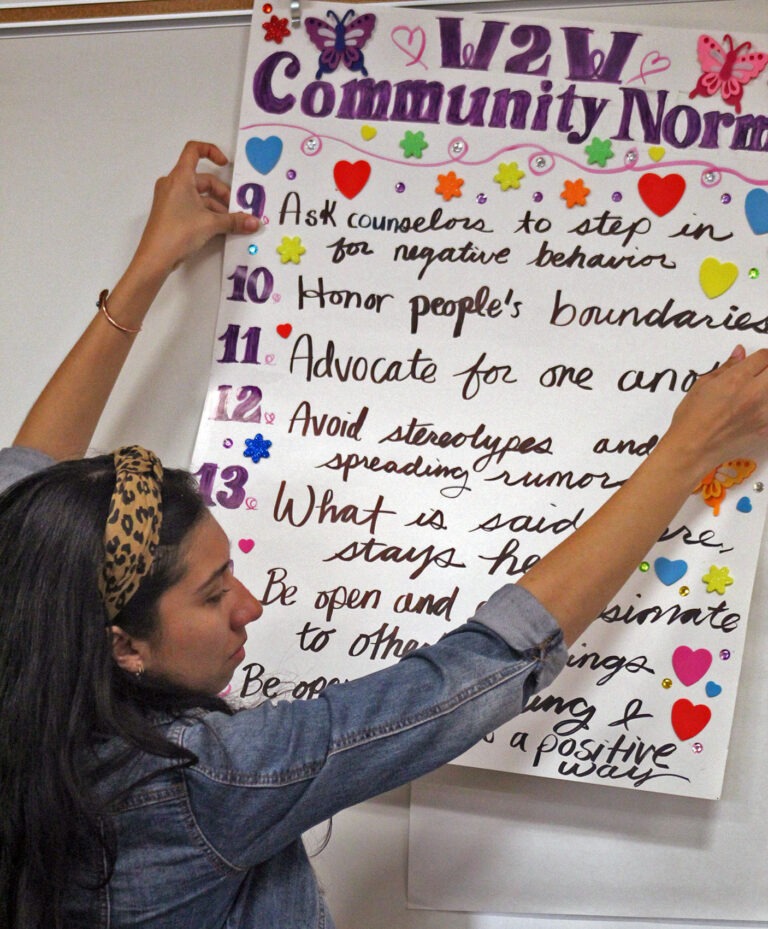 W2W
Community Norm
9 Ask counselors to step in
for negative behavior
10 Honor people's boundaries
11 Advocate for one ano
12 Avoid stereotypes and
spreading rumor
13 What is said
stays he
Be open and
to othe
Be ope
&
a positive
way